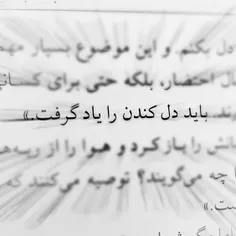 دل بکنم. و این موضوع بسیار مهم
ل احتضار، بلکه حتی برای کسانی
باید دل کندن را یاد گرفت.»
انش را باز کرد و هوا را از ریه‌ه
ا چه می‌گویند؟ توصیه می‌کنند که
ست.»